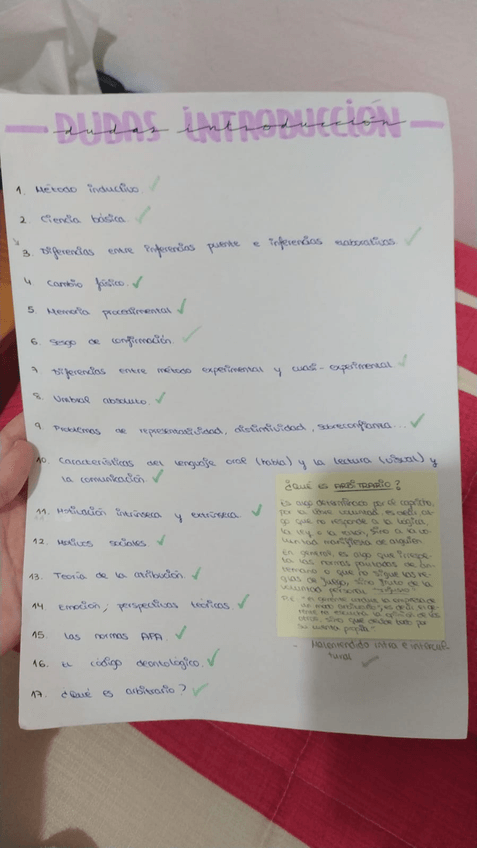 DUDAS INTRODUCCIÓN
dudas introducción
1. Método inductivo. ✓
2. Ciencia básica. ✓
3. Diferencias entre inferencias puente e inferencias elaborativas. ✓
4. Cambio fásico. ✓
5. Memoria procedimental ✓
6. Sesgo de confirmación. ✓
7. Diferencias entre método experimental y cuasi-experimental ✓
8. Umbral absoluto. ✓
9. Problemas de representatividad, distintividad, sobreconfianza... ✓
10. Características del lenguaje oral (habla) y la lectura (visual) y
la comunicación. ✓
11. Motivación intrínseca y extrínseca. ✓
12. Motivos sociales. ✓
13. Teoría de la atribución. ✓
14. Emoción; perspectivas teóricas. ✓
15. Las normas APA. ✓
16. El código deontológico. ✓
17. ¿Qué es arbitrario? ✓
¿Qué es ARBITRARIO?
Es algo determinado por el capricho,
por la libre voluntad, es decir, al-
go que no responde a la lógica,
la ley o la razón, sino a la vo-
luntad manifiesta de alguien.
En general, es algo que irrespe-
ta las normas pautadas de an-
temano o que no sigue las re-
glas de juego, sino fruto de la
voluntad personal,
de modo arbitrario, es decir, el ge-
rente no escucha la opinión de los
otros, sino que decide todo por
su cuenta propia"
- Malentendido intra e intercul
tural ✓